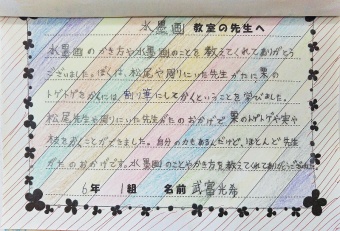 水墨画 教室の先生へ
水墨画のかき方や水墨画のことを教えてくれてありがとう
ございました。ぼくは、松尾や周りにいた先生がたに栗の
トゲトゲをかくには、割り箸にしてかくということを学びました。
松尾先生や周りにいた先生がたのおかげで栗のトゲトゲや実や
枝をかくことができました。自分の力もあるんだけど、ほとんど先生
がたのおかげです。水墨画のことやかき方を教えてくれてありがとうございました。
6年 1組 名前 武富光希